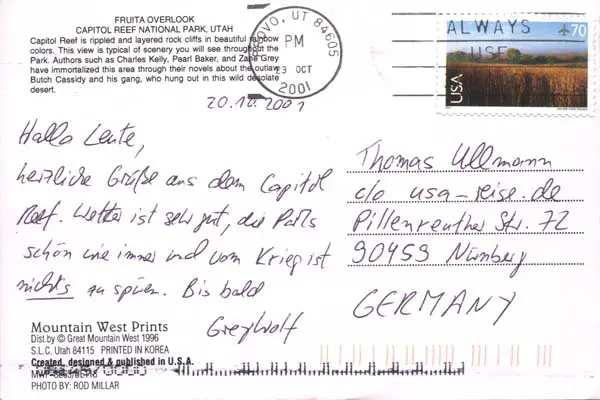 FRUITA OVERLOOK
CAPITOL REEF NATIONAL PARK, UTAH
Capitol Reef is rippled and layered rock cliffs in beautiful rainbow
colors. This view is typical of scenery you will see throughout the
Park. Authors such as Charles Kelly, Pearl Baker, and Zane Grey
have immortalized this area through their novels about the outlaw
Butch Cassidy and his gang, who hung out in this wild desolate
desert.
PROVO, UT 84605
PM
23 OCT
2001
ALWAYS
USE
70
USA
20.10.2001
Hallo Leute,
herzliche Grüße aus dem Capitol
Reef. Wetter ist sehr gut, die Parks
schön wie immer und vom Krieg ist
nichts zu spüren. Bis bald
GreyWolf
Thomas Ullmann
c/o usa-reise.de
Pillenreuther Str. 72
90459 Nürnberg
GERMANY
Mountain West Prints
Dist.by © Great Mountain West 1996
S.L.C. Utah 84115 PRINTED IN KOREA
Created, designed & published in U.S.A.
PHOTO BY: ROD MILLAR